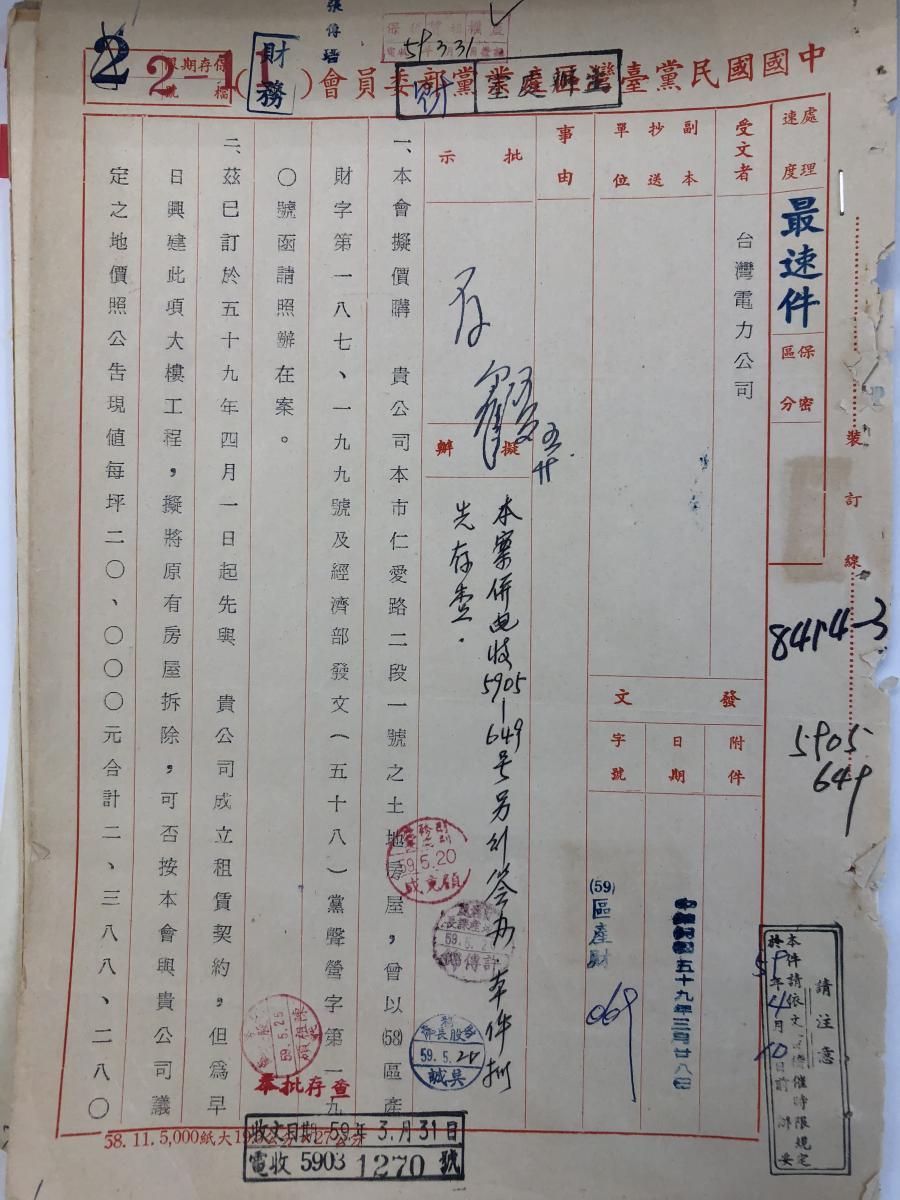 中國國民黨臺灣區產業黨部委員會( )
財務
張傳培
59 3 31
2-1
處理速度
最速件
保密區分
受文者
台灣電力公司
副本抄送單位
發文
附件
日期
中華民國五十九年三月廿八日
字號
(59)區產財
069
事由
批示
存
擬辦
本案併電收5905-649号另列簽办
先存查.
一、本會擬價購 貴公司本市仁愛路二段一號之土地房屋,曾以(58)區產
財字第一八七、一九九號及經濟部發文(五十八)黨聲營字第一九
○號函請照辦在案。
二、茲已訂於五十九年四月一日起先與 貴公司成立租賃契約,但為早
日興建此項大樓工程,擬將原有房屋拆除,可否按本會與貴公司議
定之地價照公告現值每坪二○、○○○元合計二、三八八、二八○
裝訂線
8414-3
5905
649
請注意
59.5.20
59.5.25
奉批存查
收文日期 59年3.月31日
電收 5903 1270 號
58.11.5,000